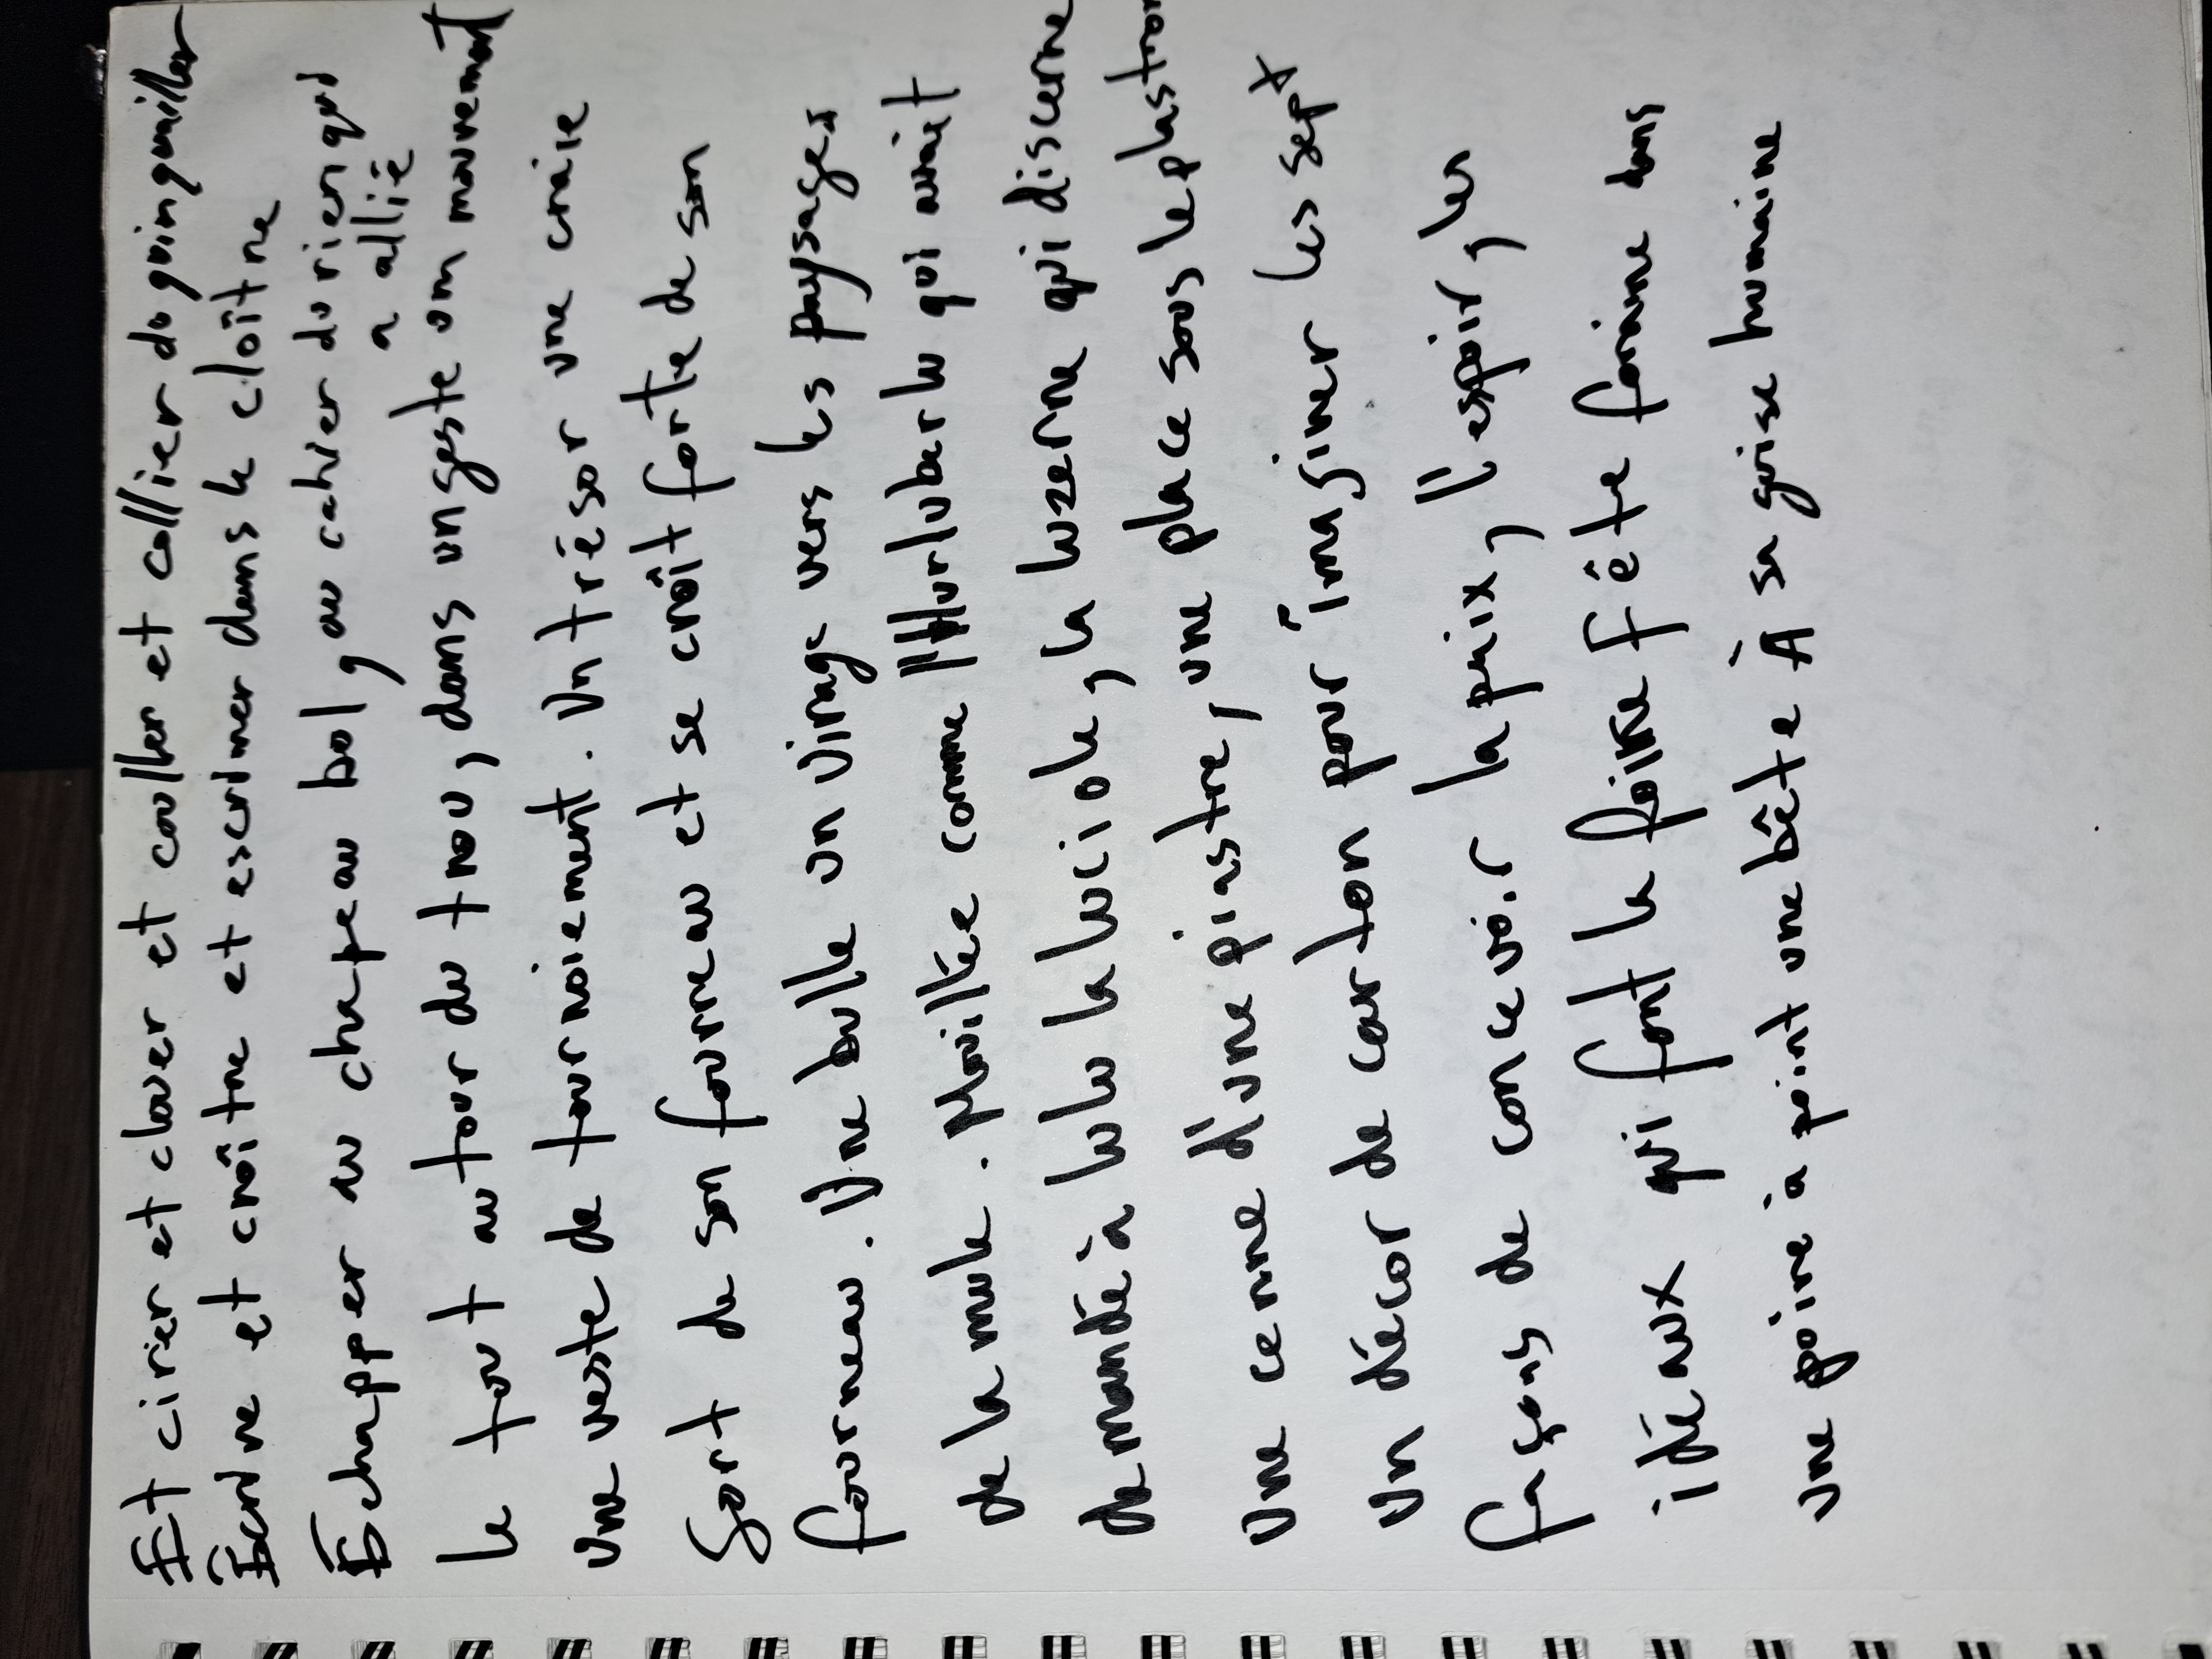 Et cirer et clouer et couller et collier do goinguiller
Écrire et croître et escrimer dans le cloître
Échapper au chapeau bol, au cahier du rien qui
a allié
le tout autour du trou, dans un geste un mouvement
une veste de tournoiement. Un trésor une craie
Sort de son fourreau et se croît forte de son
fourneau. Une bulle un virage vers les paysages
de la mule. mouillée comme Hurluberlu qui avait
demandé à lulu la luciole, la luzerne qui discerne
une cerne d'une pinstre, une place sous le plastron
Un décor de carton pour imaginer les sept
façons de concevoir la paix, l'espoir, les
idéaux qui font la foire fête foraine dans
une poire à point une bête À sa guise humaine